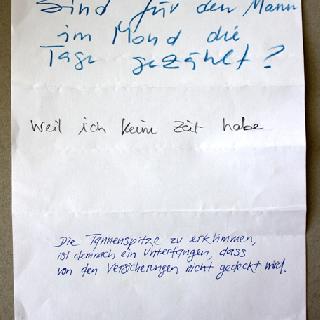 Sind für den Mann
im Mond die
Tage gezählt?
Weil ich keine Zeit habe
Die Tannenspitze zu erklimmen,
ist demnach ein Unterfangen, dass
von den Versicherungen nicht gedeckt wird.